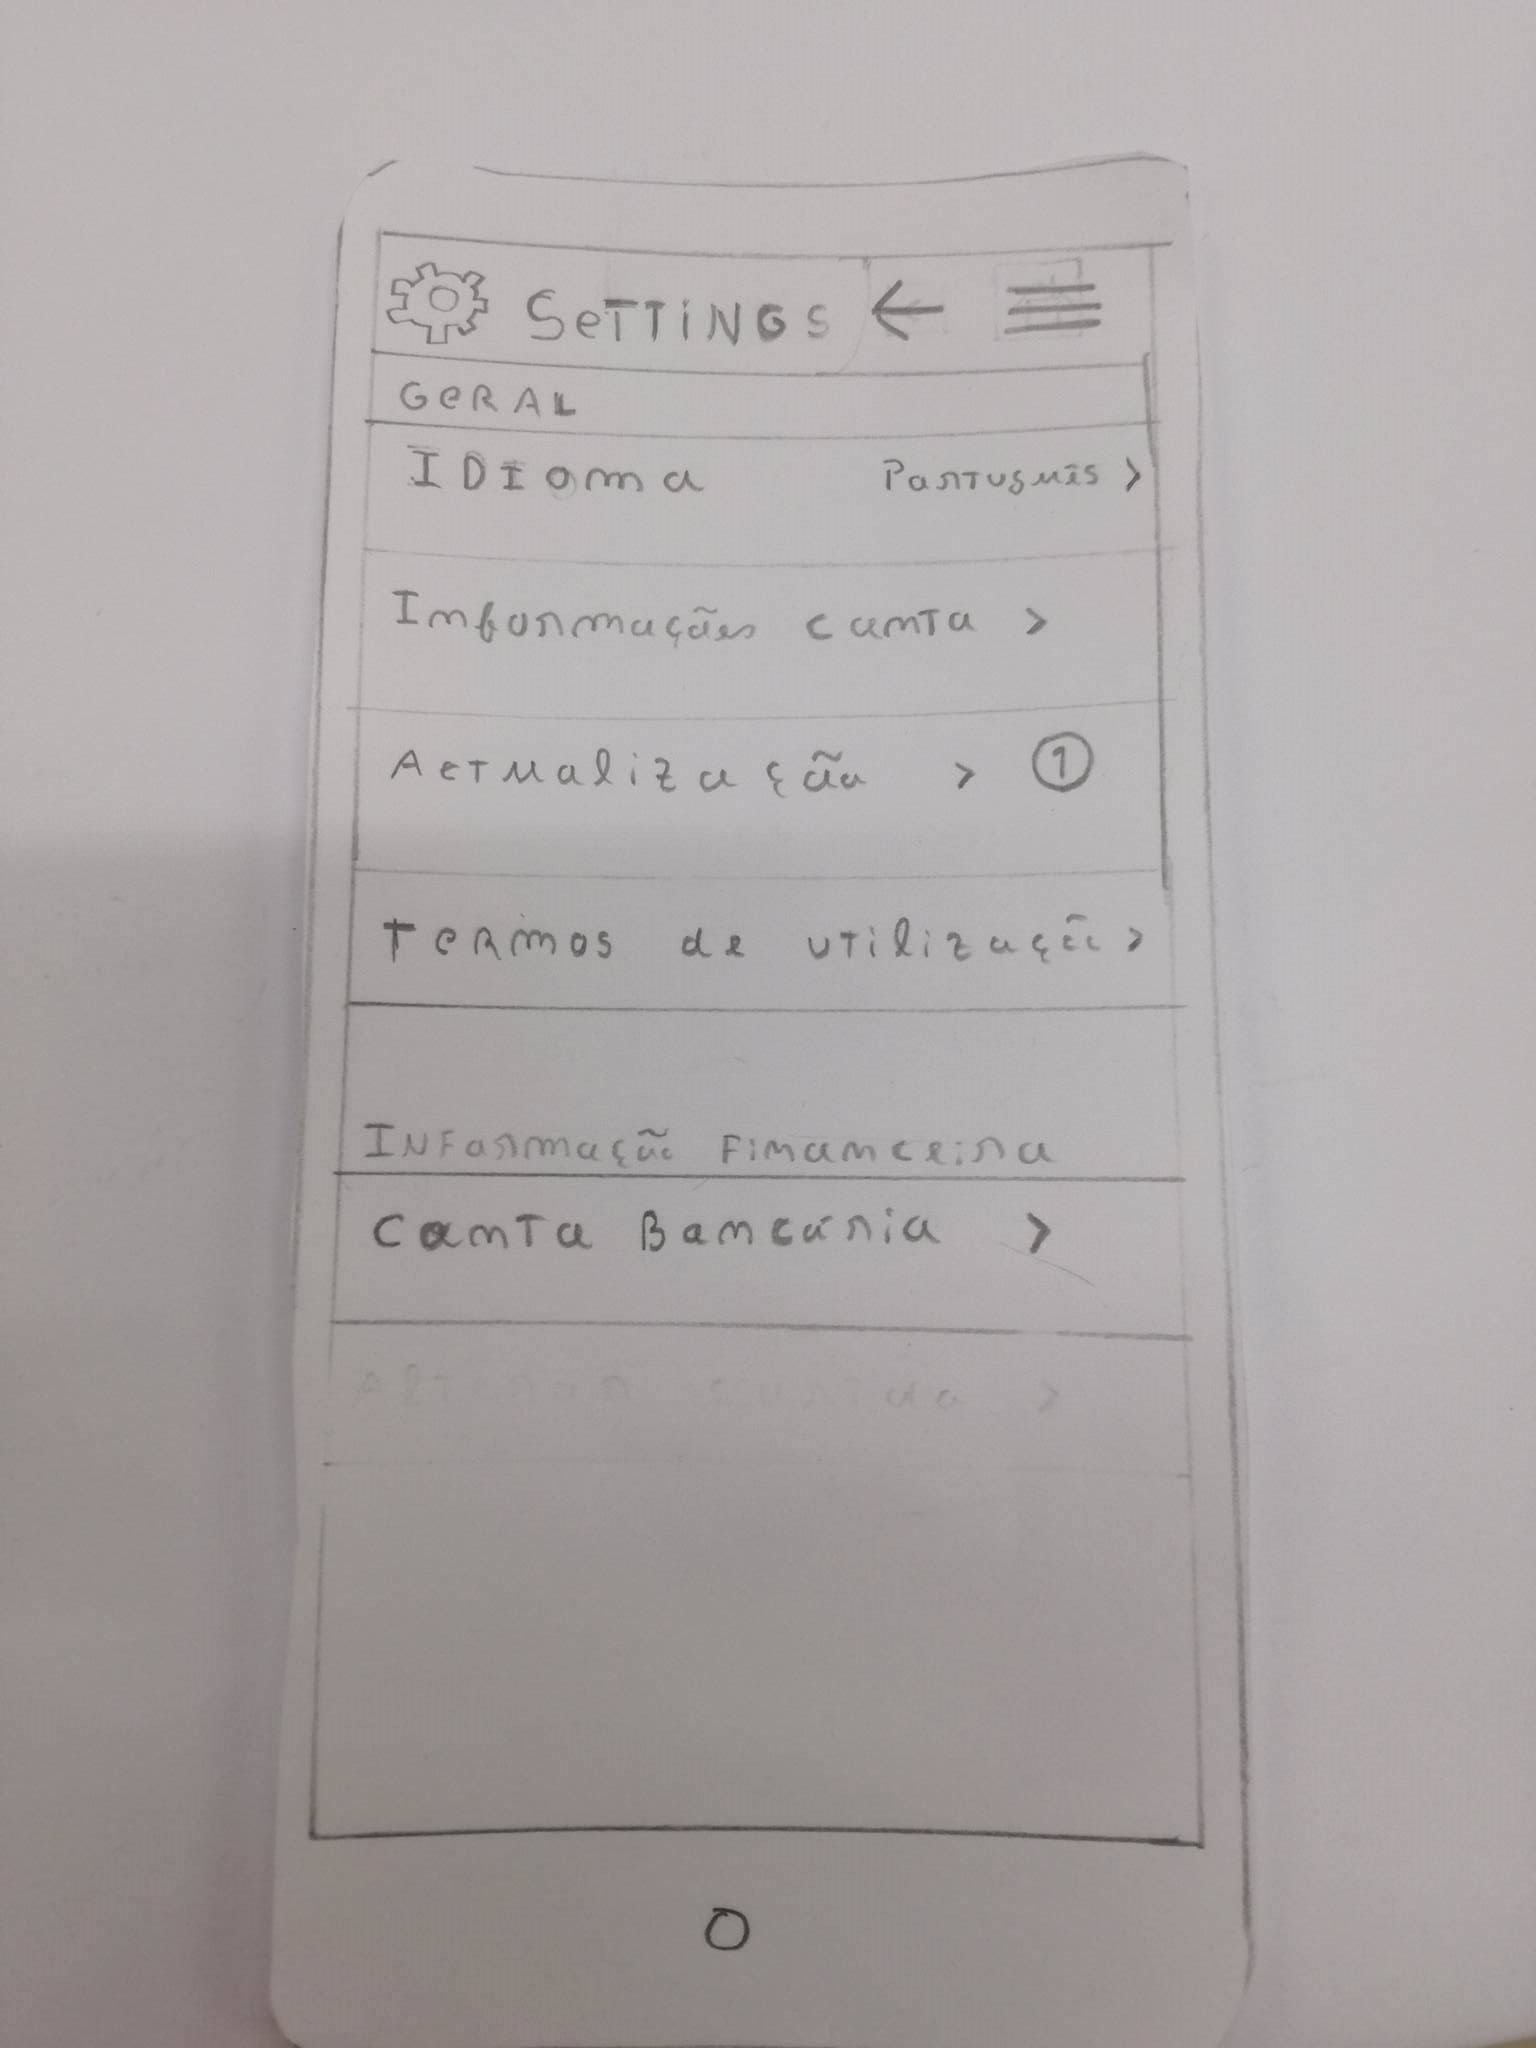 SETTINGS
GERAL
IDIOMA Português >
Informações conta >
Actualização > 1
Termos de utilização >
Informação Financeira
Conta Bancária >
>